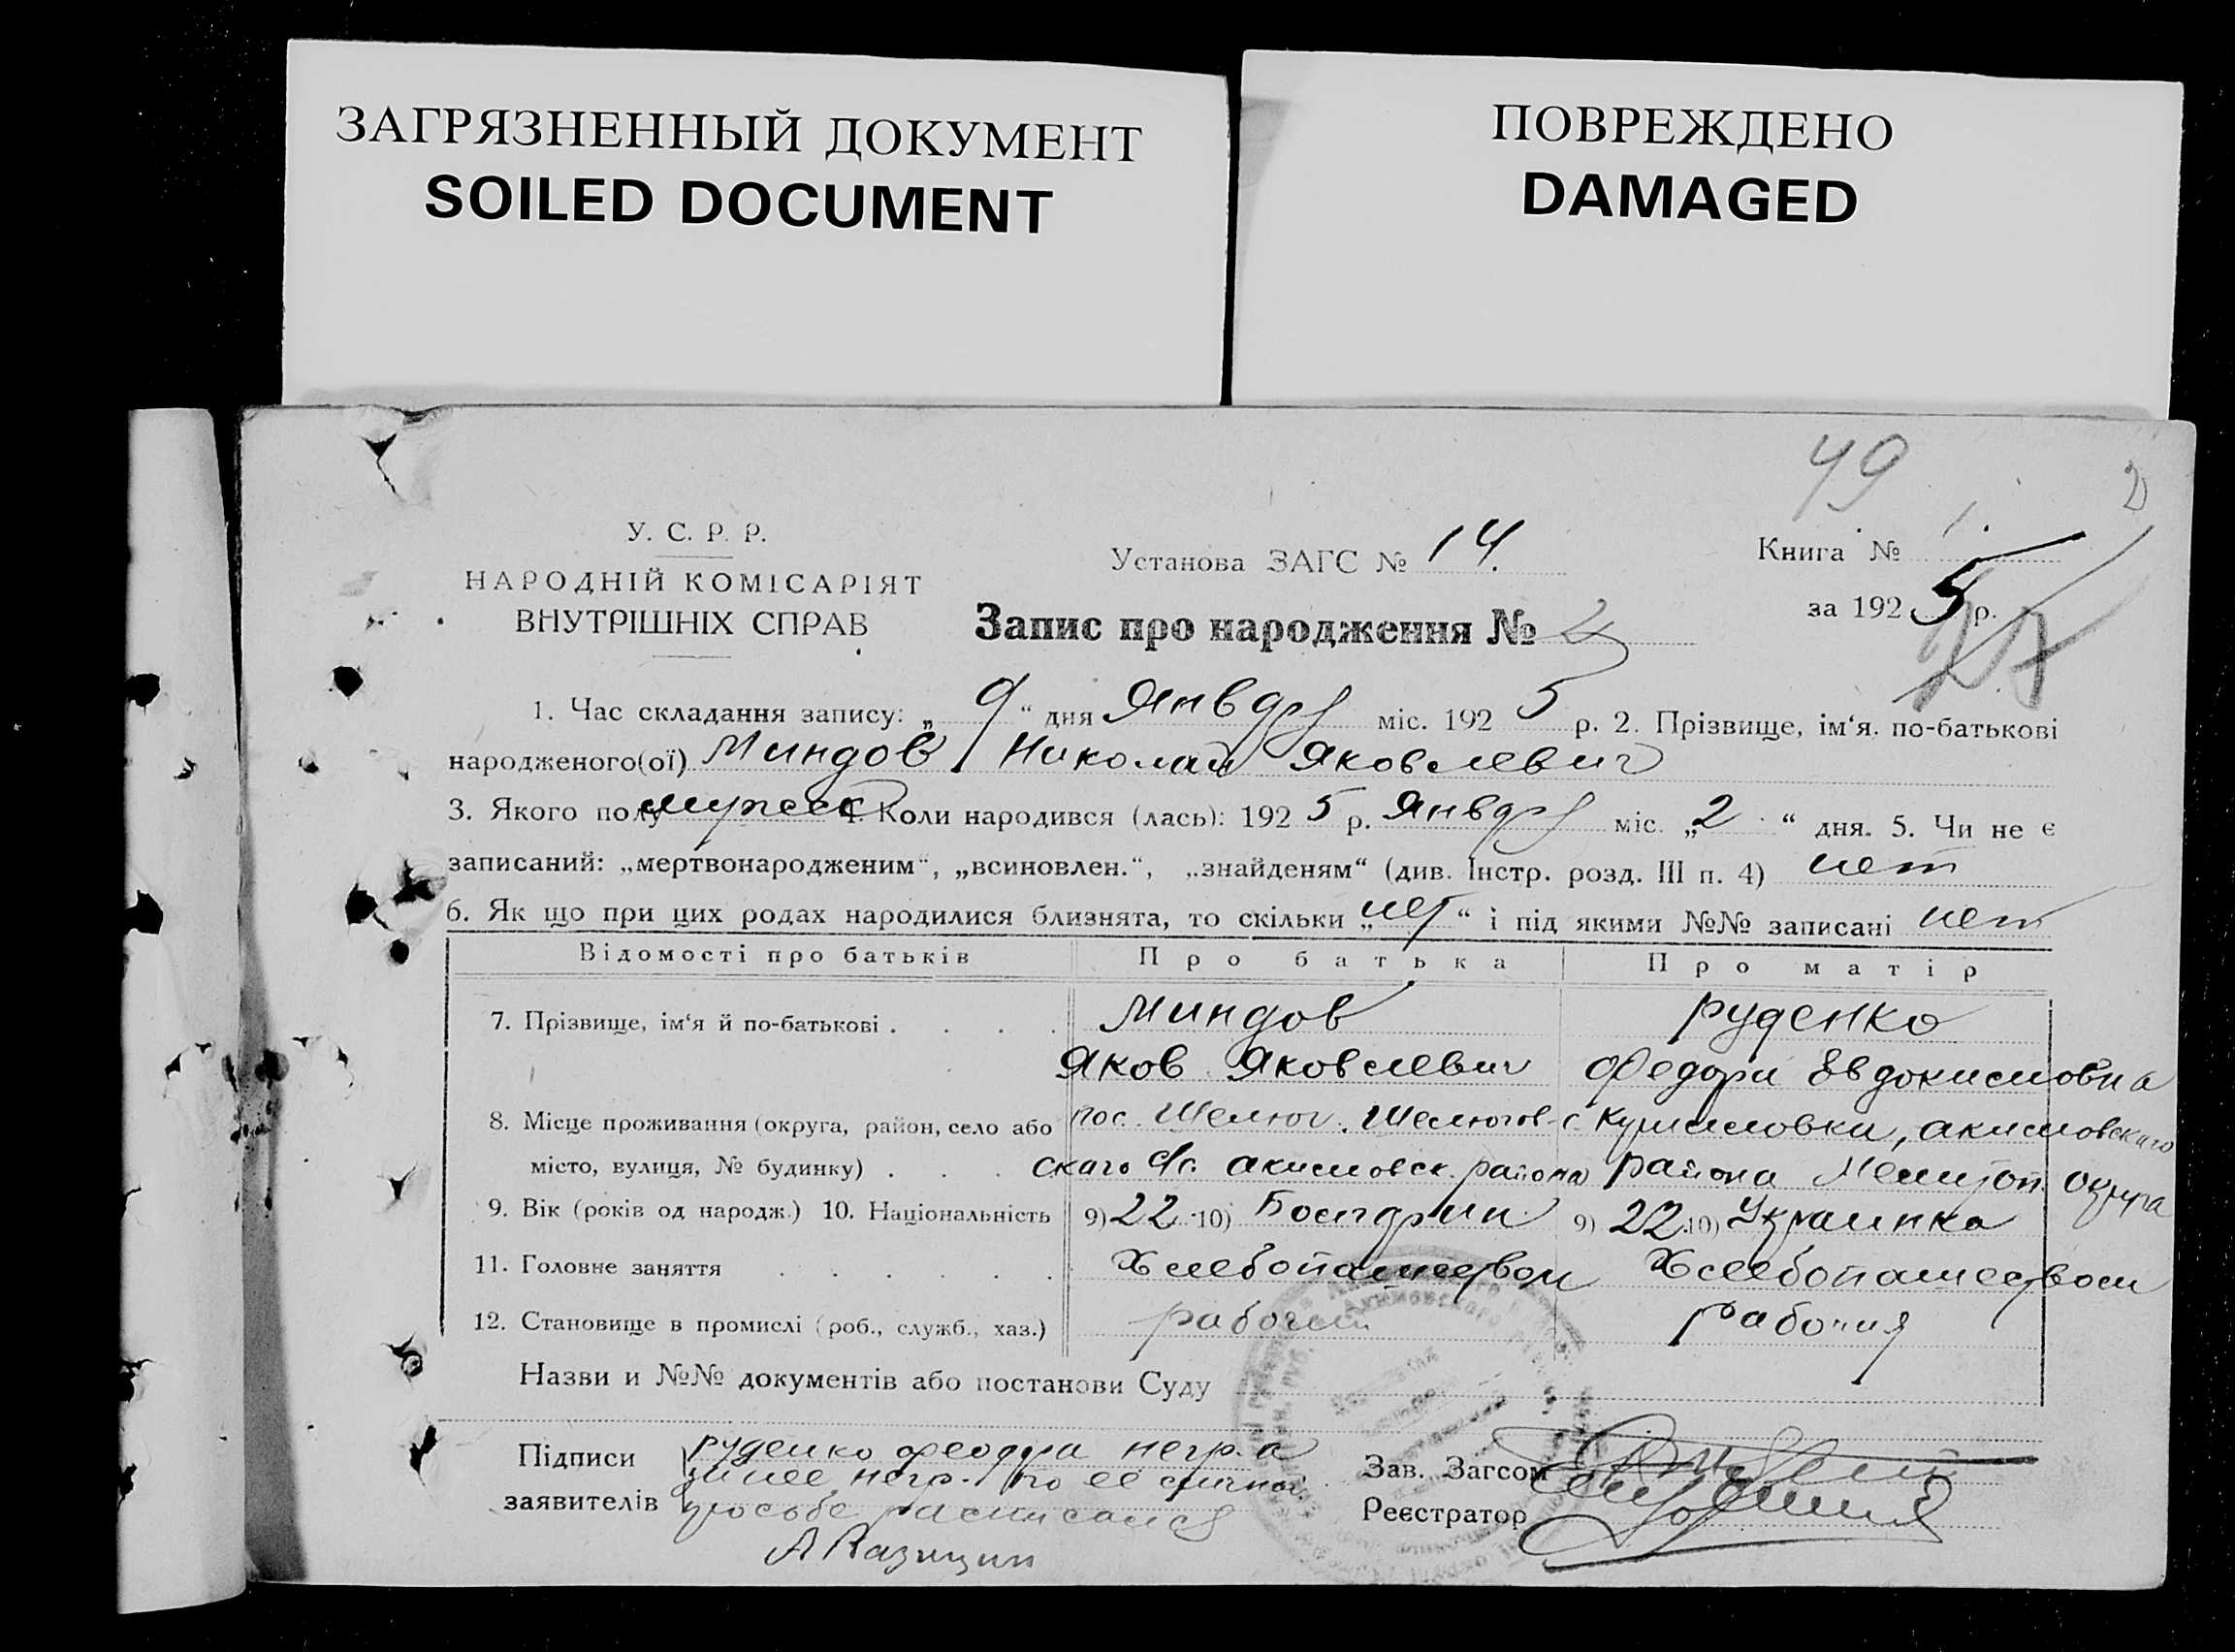 ЗАГРЯЗНЕННЫЙ ДОКУМЕНТ
SOILED DOCUMENT
ПОВРЕЖДЕНО
DAMAGED
49
2
У. С. Р. Р.
НАРОДНІЙ КОМІСАРІЯТ
ВНУТРІШНІХ СПРАВ
Установа ЗАГС № 14.
Книга № 1.
за 1925 р.
Запис про народження № 2
1. Час складання запису: „9“ дня Января міс. 1925 р. 2. Прізвище, ім‘я, по-батькові
народженого(ої) Миндов Николай Яковлевич
3. Якого полу мужск 4. Коли народився (лась): 1925 р. Января міс. „2“ дня. 5. Чи не є
записаний: „мертвонародженим“, „всиновлен.“, „знайденям“ (див. Інстр. розд. III п. 4) нет
6. Як що при цих родах народилися близнята, то скільки „нет“ і під якими №№ записані нет
Відомості про батьків Про батька Про матір
7. Прізвище, ім‘я й по-батькові . . . . Миндов Руденко
Яков Яковлевич Федора Евдокимовна
8. Місце проживання (округа, район, село або пос. Шелюг. Шелюгов- с Акимовскаго
місто, вулиця, № будинку) . . . скаго с/с. Акимовск. района района Мелитоп. округа
9. Вік (років од народж.) 10. Національність 9) 22 10) 9) 22 10) Украинка
11. Головне заняття . . . . . . Хлебопашеством Хлебопашеством
12. Становище в промислі (роб., служб., хаз.) рабочий рабочая
Назви и №№ документів або постанови Суду
Підписи
заявителів
Руденко Феодора негр. а
за нее негр. по ее личной
просьбе расписался
Зав. Загсом
Реєстратор